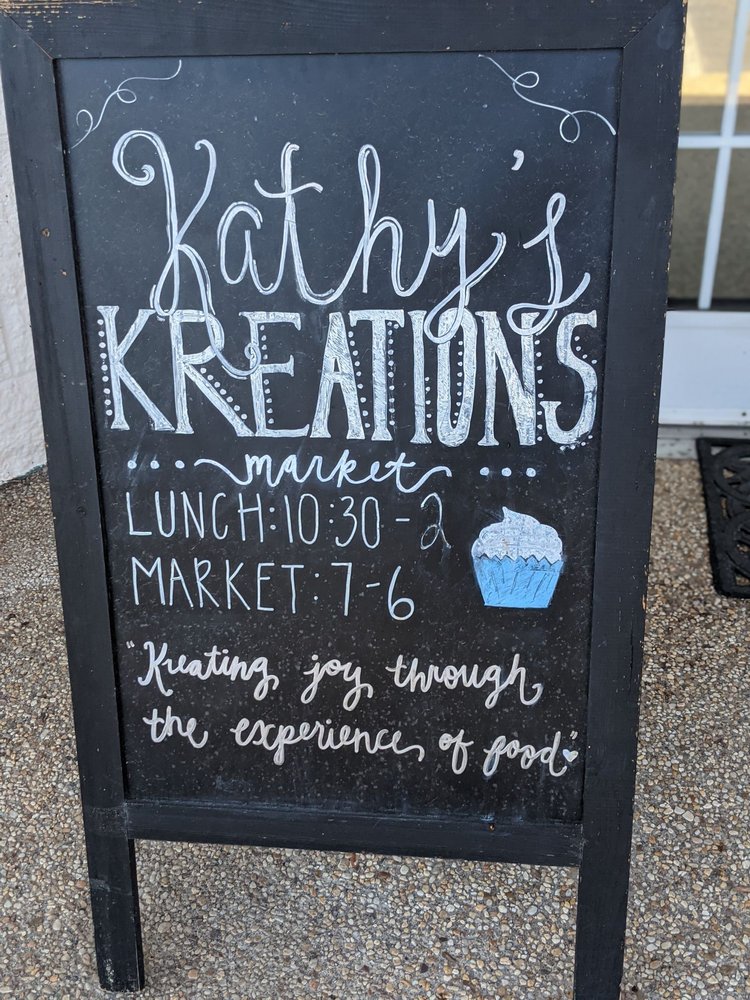 Kathy's
KREATIONS
market
LUNCH: 10:30 - 2
MARKET: 7-6
"Kreating joy through
the experience of food"